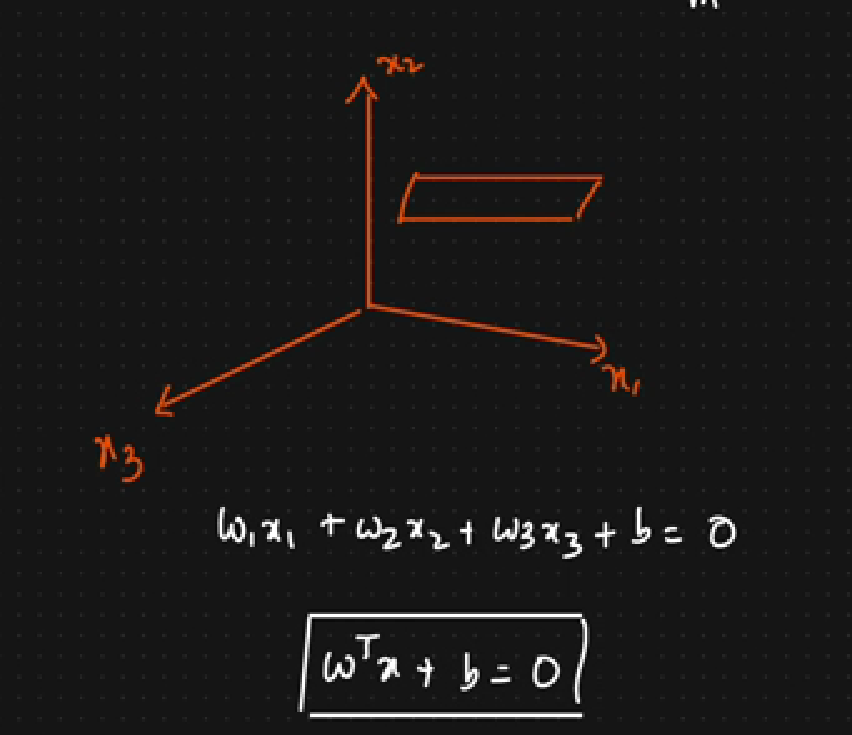 x₂
x₁
x₃
ω₁x₁ + ω₂x₂ + ω₃x₃ + b = 0
ωᵀx + b = 0